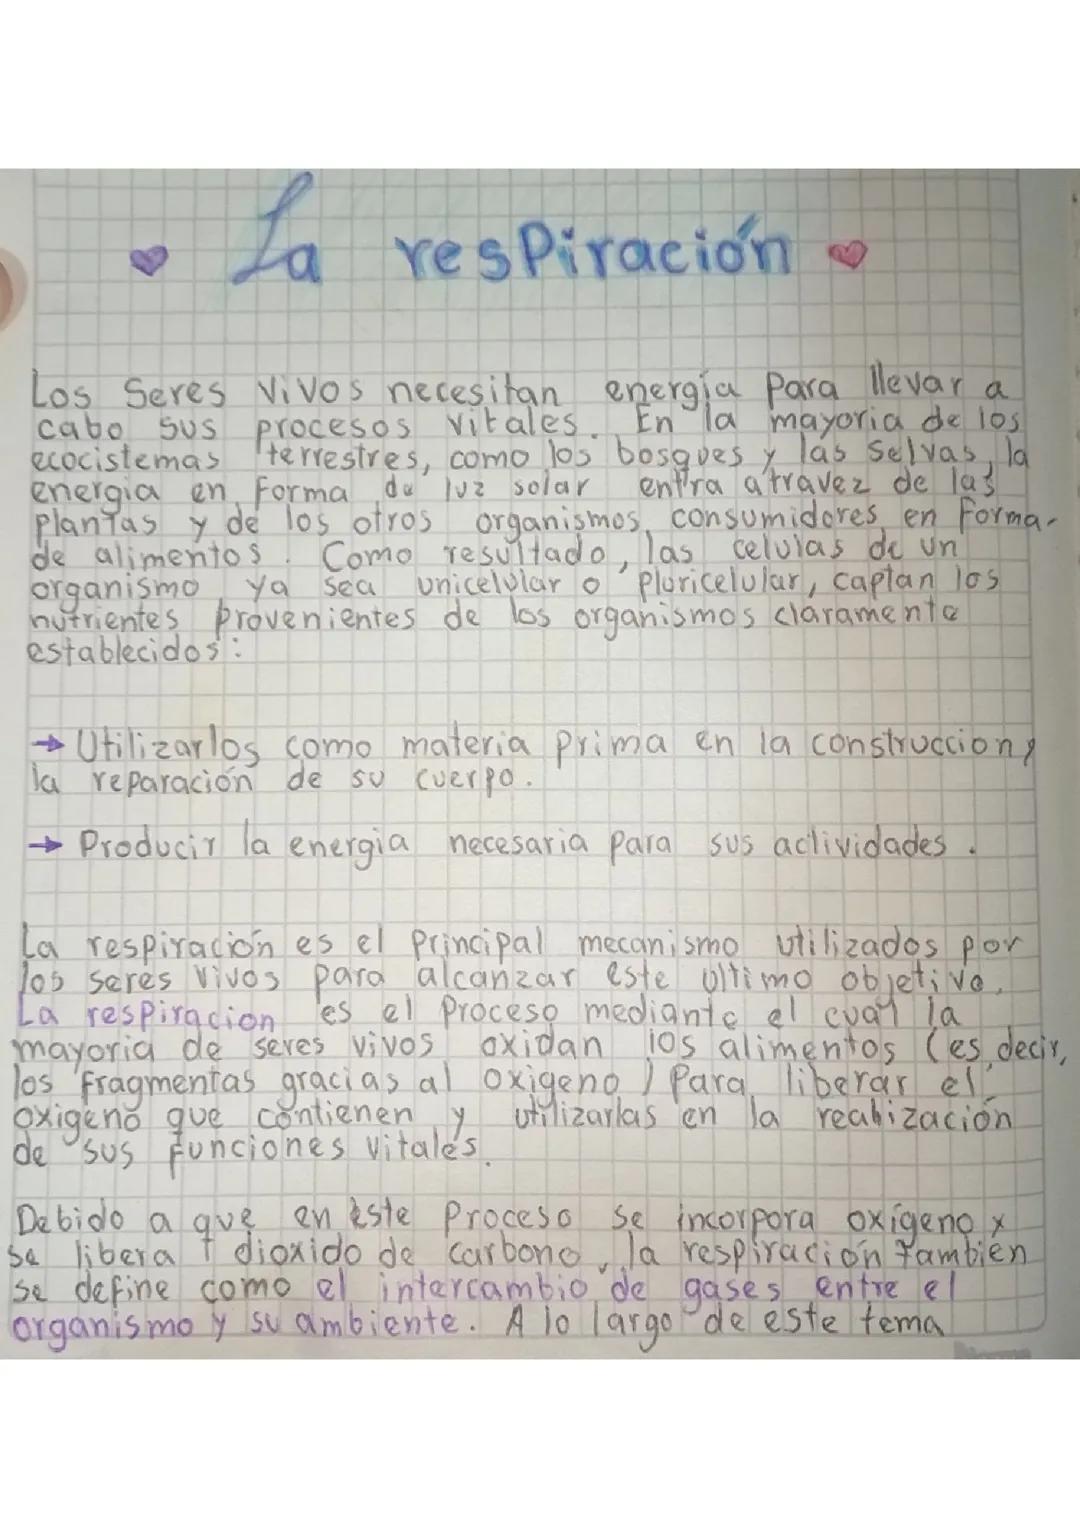 La resPiración
Los Seres ViVos necesitan energía Para llevar a
cabo sus procesos vitales. En la mayoria de los
ecocistemas terrestres, como los bosques y las Selvas, la
energia en Forma de luz solar entra atravez de las
Plantas y de los otros organismos, consumidores, en Forma
de alimentos. Como resultado, las celulas de un
organismo, ya sea unicelular o Pluricelular, captan los
nutrientes Provenientes de los organismos claramente
establecidos:
→ Utilizarlos como materia Prima en la construccion y
la reparación de su cuerpo.
→ Producir la energia necesaria Para sus actividades.
La respiración es el Principal mecanismo utilizados por
los seres vivos para alcanzar este ultimo objetivo.
La resPiracion es el Proceso mediante el cual la
mayoria de seres vivos oxidan los alimentos (es decir,
los fragmentas gracias al oxigeno) Para liberar el
oxigeno que contienen y utilizarlas en la realización
de sus funciones vitales.
Debido a que en este Proceso se incorpora oxígeno y
se libera dioxido de carbono, la respiración tambien
se define como el intercambio de gases entre el
organismo y su ambiente. A lo largo de este tema